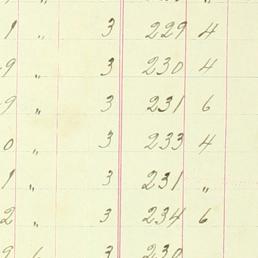 1 " 3 229 4
9 " 3 230 4
9 " 3 231 6
0 " 3 233 4
1 " 3 231 "
2 " 3 234 6
9 6 3 230